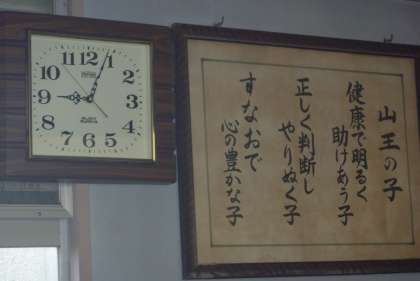 山王の子
健康で明るく
助けあう子
正しく判断し
やりぬく子
すなおで
心の豊かな子
12
1
2
3
4
5
6
7
8
9
10
11